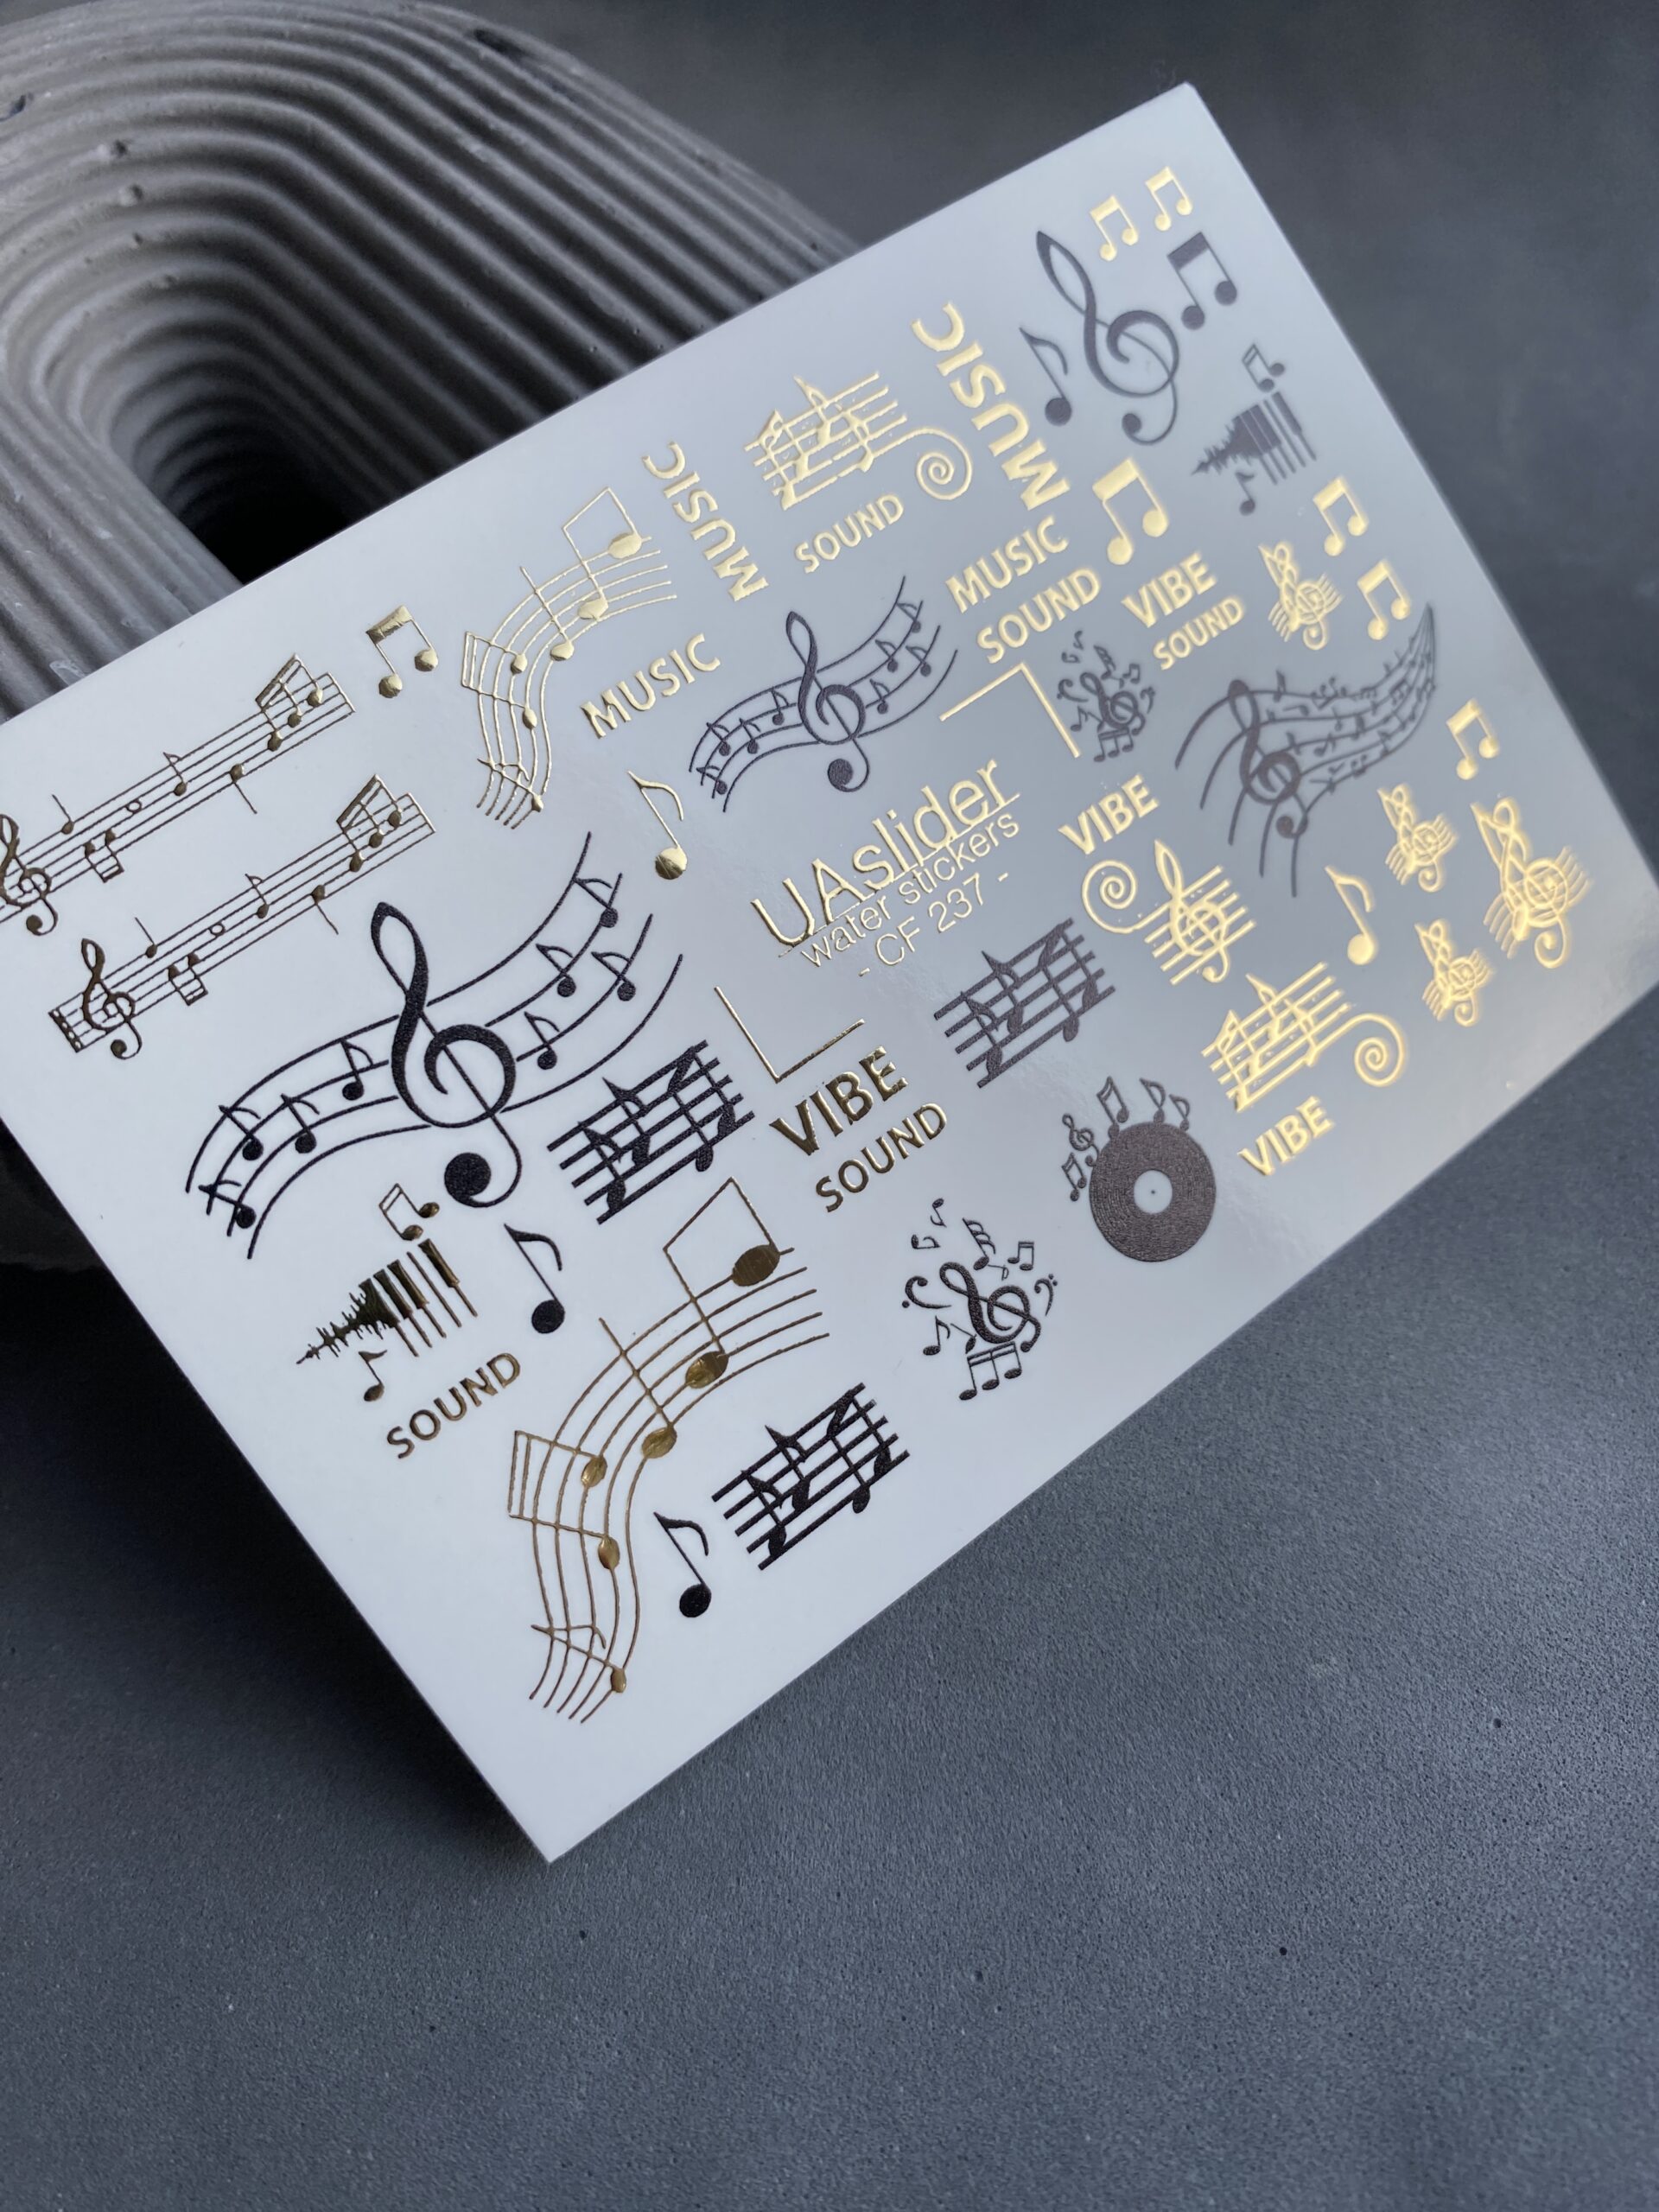 MUSIC
SOUND
MUSIC
MUSIC
MUSIC
SOUND
VIBE
SOUND
UAslider
water stickers
- CF 237 -
VIBE
VIBE
SOUND
VIBE
SOUND